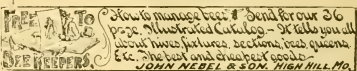 FREE TO
BEE KEEPERS.
How to manage bees Send for our 36
page, Illustrated Catalog.- It tells you all
about hives, fixtures, sections, bees, queens,
Etc. The best and cheapest goods.-
JOHN NEBEL & SON. HIGH HILL, MO.